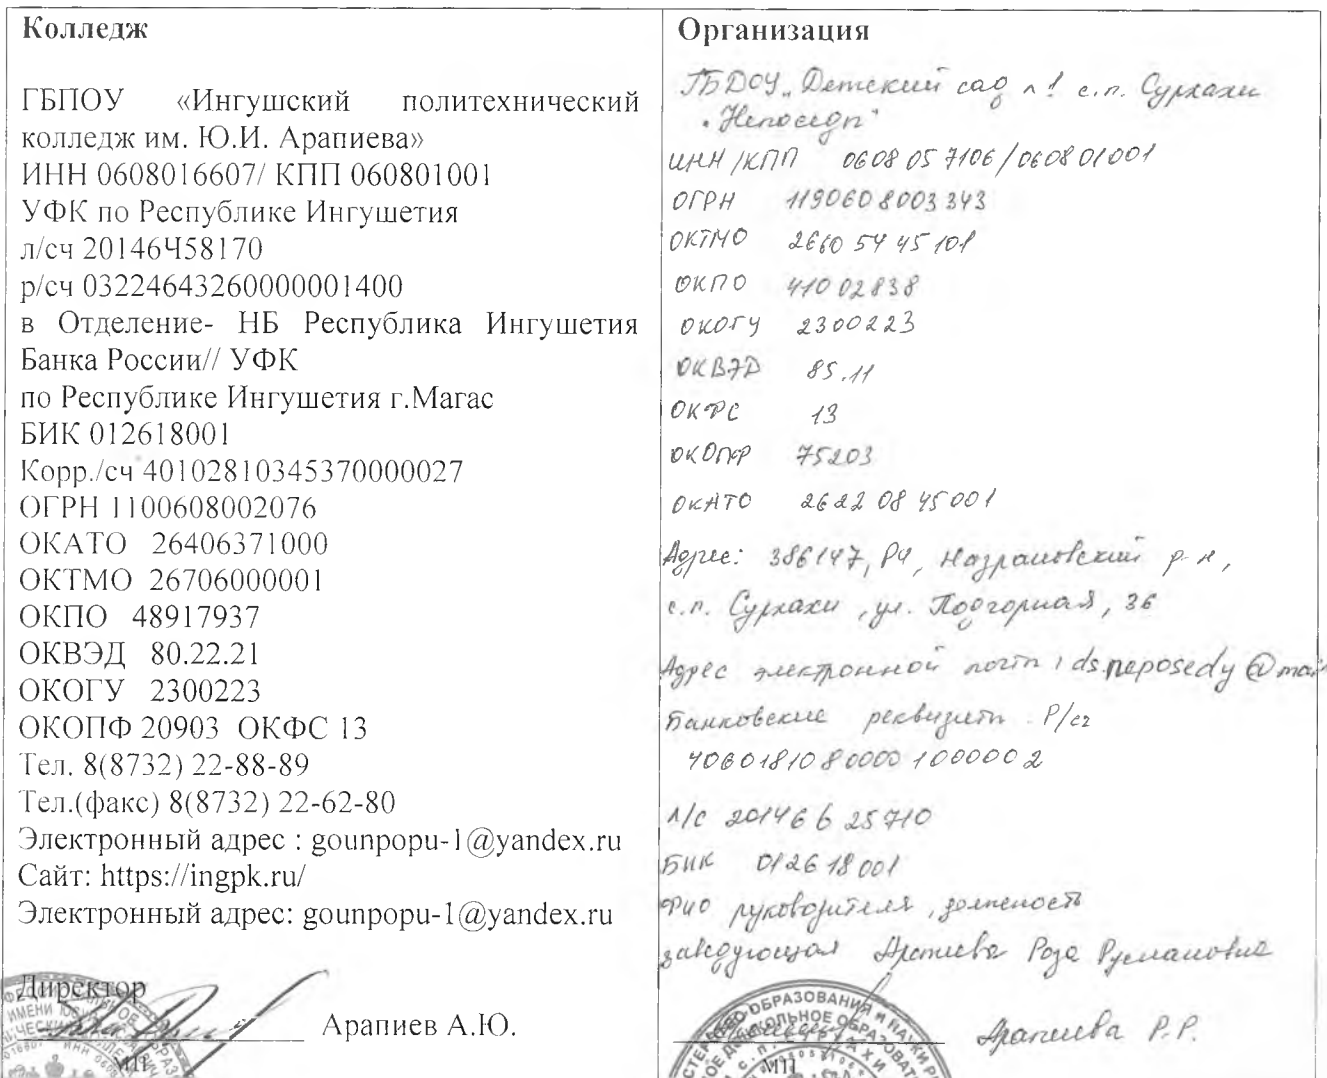 Колледж
ГБПОУ «Ингушский политехнический
колледж им. Ю.И. Арапиева»
ИНН 0608016607/ КПП 060801001
УФК по Республике Ингушетия
л/сч 20146Ч58170
р/сч 03224643260000001400
в Отделение- НБ Республика Ингушетия
Банка России// УФК
по Республике Ингушетия г.Магас
БИК 012618001
Корр./сч 40102810345370000027
ОГРН 1100608002076
ОКАТО 26406371000
ОКТМО 26706000001
ОКПО 48917937
ОКВЭД 80.22.21
ОКОГУ 2300223
ОКОПФ 20903 ОКФС 13
Тел. 8(8732) 22-88-89
Тел.(факс) 8(8732) 22-62-80
Электронный адрес : gounpopu-1@yandex.ru
Сайт: https://ingpk.ru/
Электронный адрес: gounpopu-1@yandex.ru
Директор
Арапиев А.Ю.
МП
Организация
ГБДОУ „Детский сад №1 с.п. Сурхахи
"Непоседы"
ИНН/КПП 0608057106/060801001
ОГРН 1190608003343
ОКТМО 26605445101
ОКПО 41002838
ОКОГУ 2300223
ОКВЭД 85.11
ОКФС 13
ОКОПФ 75203
ОКАТО 26220845001
Адрес: 386147, РИ, Назрановский р-н,
с.п. Сурхахи, ул. Подгорная, 36
Адрес электронной почты: ds.neposedy@mail
Банковские реквизиты Р/сч
40601810800001000002
Л/с 20146Б25710
БИК 012618001
ФИО руководителя, должность
заведующая Арапиева Роза Руслановна
Арапиева Р.Р.
МП